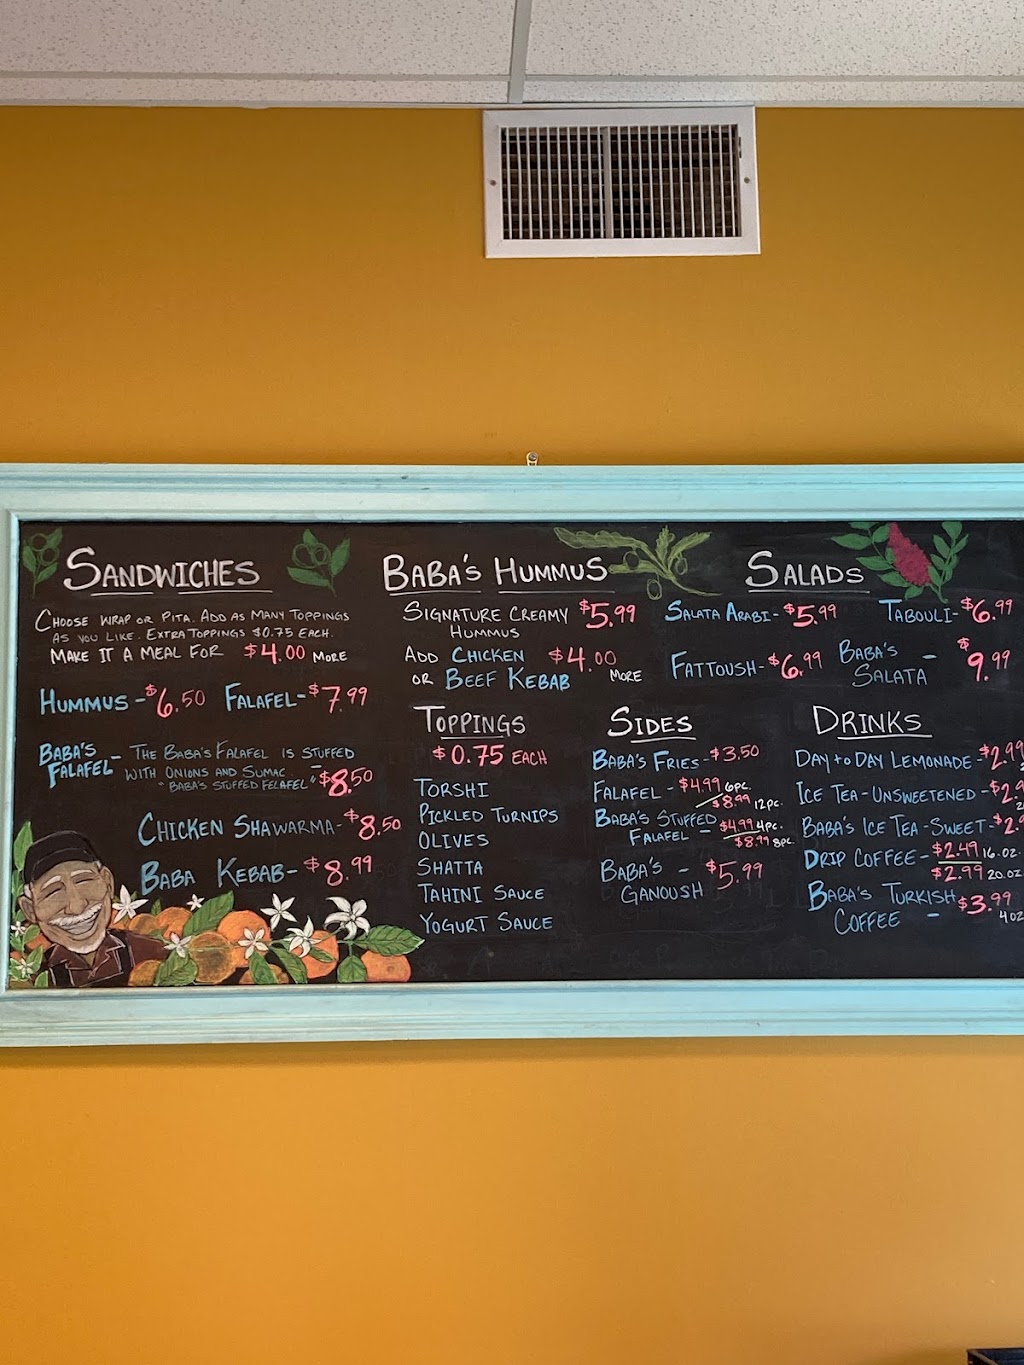 SANDWICHES
CHOOSE WRAP OR PITA. ADD AS MANY TOPPINGS
AS YOU LIKE. EXTRA TOPPINGS $0.75 EACH.
MAKE IT A MEAL FOR $4.00 MORE
HUMMUS - $6.50 FALAFEL - $7.99
BABA'S FALAFEL - THE BABA'S FALAFEL IS STUFFED
WITH ONIONS AND SUMAC
"BABA'S STUFFED FELAFEL" - $8.50
CHICKEN SHAWARMA - $8.50
BABA KEBAB - $8.99
BABA'S HUMMUS
SIGNATURE CREAMY $5.99
HUMMUS
ADD CHICKEN $4.00
OR BEEF KEBAB MORE
TOPPINGS
$0.75 EACH
TORSHI
PICKLED TURNIPS
OLIVES
SHATTA
TAHINI SAUCE
YOGURT SAUCE
SALADS
SALATA ARABI - $5.99 TABOULI - $6.99
FATTOUSH - $6.99 BABA'S SALATA - $9.99
SIDES
BABA'S FRIES - $3.50
FALAFEL - $4.99 6PC.
$8.99 12PC.
BABA'S STUFFED
FALAFEL - $4.99 4PC.
$8.99 8PC.
BABA'S - $5.99
GANOUSH
DRINKS
DAY to DAY LEMONADE - $2.99
ICE TEA - UNSWEETENED - $2.9
BABA'S ICE TEA - SWEET - $2.
DRIP COFFEE - $2.49 16.OZ.
$2.99 20.OZ
BABA'S TURKISH
COFFEE - $3.99
4OZ